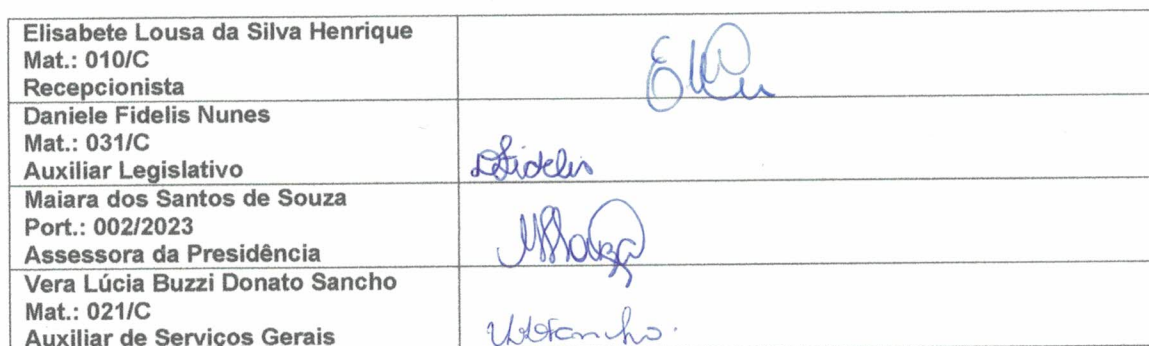 Elisabete Lousa da Silva Henrique
Mat.: 010/C
Recepcionista
Daniele Fidelis Nunes
Mat.: 031/C
Auxiliar Legislativo
DFidelis
Maiara dos Santos de Souza
Port.: 002/2023
Assessora da Presidência
MSSouza
Vera Lúcia Buzzi Donato Sancho
Mat.: 021/C
Auxiliar de Serviços Gerais